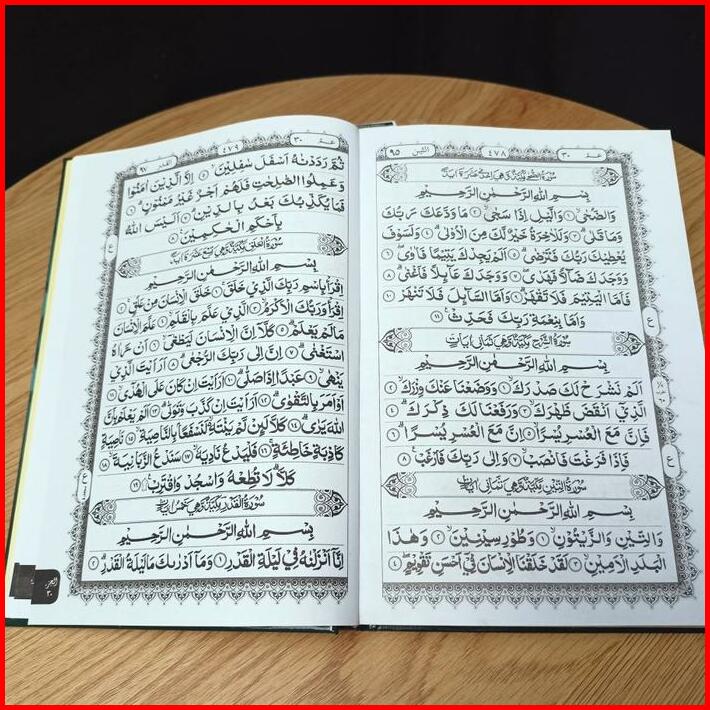 عم ٣٠
٤٧٨
التين ٩٥
سورة الضحى مكية وهي احدى عشرة اية
بِسْمِ اللهِ الرَّحْمٰنِ الرَّحِيْمِ
وَالضُّحٰى ١ وَالَّيْلِ اِذَا سَجٰى ٢ مَا وَدَّعَكَ رَبُّكَ
وَمَا قَلٰى ٣ وَلَلْاٰخِرَةُ خَيْرٌ لَّكَ مِنَ الْاُوْلٰى ٤ وَلَسَوْفَ
يُعْطِيْكَ رَبُّكَ فَتَرْضٰى ٥ اَلَمْ يَجِدْكَ يَتِيْمًا فَاٰوٰى ٦
وَوَجَدَكَ ضَآلًّا فَهَدٰى ٧ وَوَجَدَكَ عَآئِلًا فَاَغْنٰى ٨
فَاَمَّا الْيَتِيْمَ فَلَا تَقْهَرْ ٩ وَاَمَّا السَّآئِلَ فَلَا تَنْهَرْ ١٠
وَاَمَّا بِنِعْمَةِ رَبِّكَ فَحَدِّثْ ١١
سورة الشرح مكية وهي ثماني ايات
بِسْمِ اللهِ الرَّحْمٰنِ الرَّحِيْمِ
اَلَمْ نَشْرَحْ لَكَ صَدْرَكَ ١ وَوَضَعْنَا عَنْكَ وِزْرَكَ ٢
الَّذِيْٓ اَنْقَضَ ظَهْرَكَ ٣ وَرَفَعْنَا لَكَ ذِكْرَكَ ٤
فَاِنَّ مَعَ الْعُسْرِ يُسْرًا ٥ اِنَّ مَعَ الْعُسْرِ يُسْرًا ٦
فَاِذَا فَرَغْتَ فَانْصَبْ ٧ وَاِلٰى رَبِّكَ فَارْغَبْ ٨
سورة التين مكية وهي ثماني ايات
بِسْمِ اللهِ الرَّحْمٰنِ الرَّحِيْمِ
وَالتِّيْنِ وَالزَّيْتُوْنِ ١ وَطُوْرِ سِيْنِيْنَ ٢ وَهٰذَا
الْبَلَدِ الْاَمِيْنِ ٣ لَقَدْ خَلَقْنَا الْاِنْسَانَ فِيْٓ اَحْسَنِ تَقْوِيْمٍ ٤
ع
ع
عم ٣٠
٤٧٩
القدر ٩٧
ثُمَّ رَدَدْنٰهُ اَسْفَلَ سٰفِلِيْنَ ٥ اِلَّا الَّذِيْنَ اٰمَنُوْا
وَعَمِلُوا الصّٰلِحٰتِ فَلَهُمْ اَجْرٌ غَيْرُ مَمْنُوْنٍ ٦
فَمَا يُكَذِّبُكَ بَعْدُ بِالدِّيْنِ ٧ اَلَيْسَ اللهُ
بِاَحْكَمِ الْحٰكِمِيْنَ ٨
سورة العلق مكية وهي تسع عشرة اية
بِسْمِ اللهِ الرَّحْمٰنِ الرَّحِيْمِ
اِقْرَأْ بِاسْمِ رَبِّكَ الَّذِيْ خَلَقَ ١ خَلَقَ الْاِنْسَانَ مِنْ عَلَقٍ ٢
اِقْرَأْ وَرَبُّكَ الْاَكْرَمُ ٣ الَّذِيْ عَلَّمَ بِالْقَلَمِ ٤ عَلَّمَ الْاِنْسَانَ
مَا لَمْ يَعْلَمْ ٥ كَلَّآ اِنَّ الْاِنْسَانَ لَيَطْغٰٓى ٦ اَنْ رَّاٰهُ
اسْتَغْنٰى ٧ اِنَّ اِلٰى رَبِّكَ الرُّجْعٰى ٨ اَرَاَيْتَ الَّذِيْ
يَنْهٰى ٩ عَبْدًا اِذَا صَلّٰى ١٠ اَرَاَيْتَ اِنْ كَانَ عَلَى الْهُدٰٓى ١١
اَوْ اَمَرَ بِالتَّقْوٰى ١٢ اَرَاَيْتَ اِنْ كَذَّبَ وَتَوَلّٰى ١٣ اَلَمْ يَعْلَمْ بِاَنَّ
اللهَ يَرٰى ١٤ كَلَّا لَئِنْ لَّمْ يَنْتَهِ لَنَسْفَعًا بِالنَّاصِيَةِ ١٥ نَاصِيَةٍ
كَاذِبَةٍ خَاطِئَةٍ ١٦ فَلْيَدْعُ نَادِيَهٗ ١٧ سَنَدْعُ الزَّبَانِيَةَ ١٨
كَلَّا لَا تُطِعْهُ وَاسْجُدْ وَاقْتَرِبْ ١٩
سورة القدر مكية وهي خمس ايات
بِسْمِ اللهِ الرَّحْمٰنِ الرَّحِيْمِ
اِنَّآ اَنْزَلْنٰهُ فِيْ لَيْلَةِ الْقَدْرِ ١ وَمَآ اَدْرٰىكَ مَا لَيْلَةُ الْقَدْرِ ٢
الجزء
٣٠